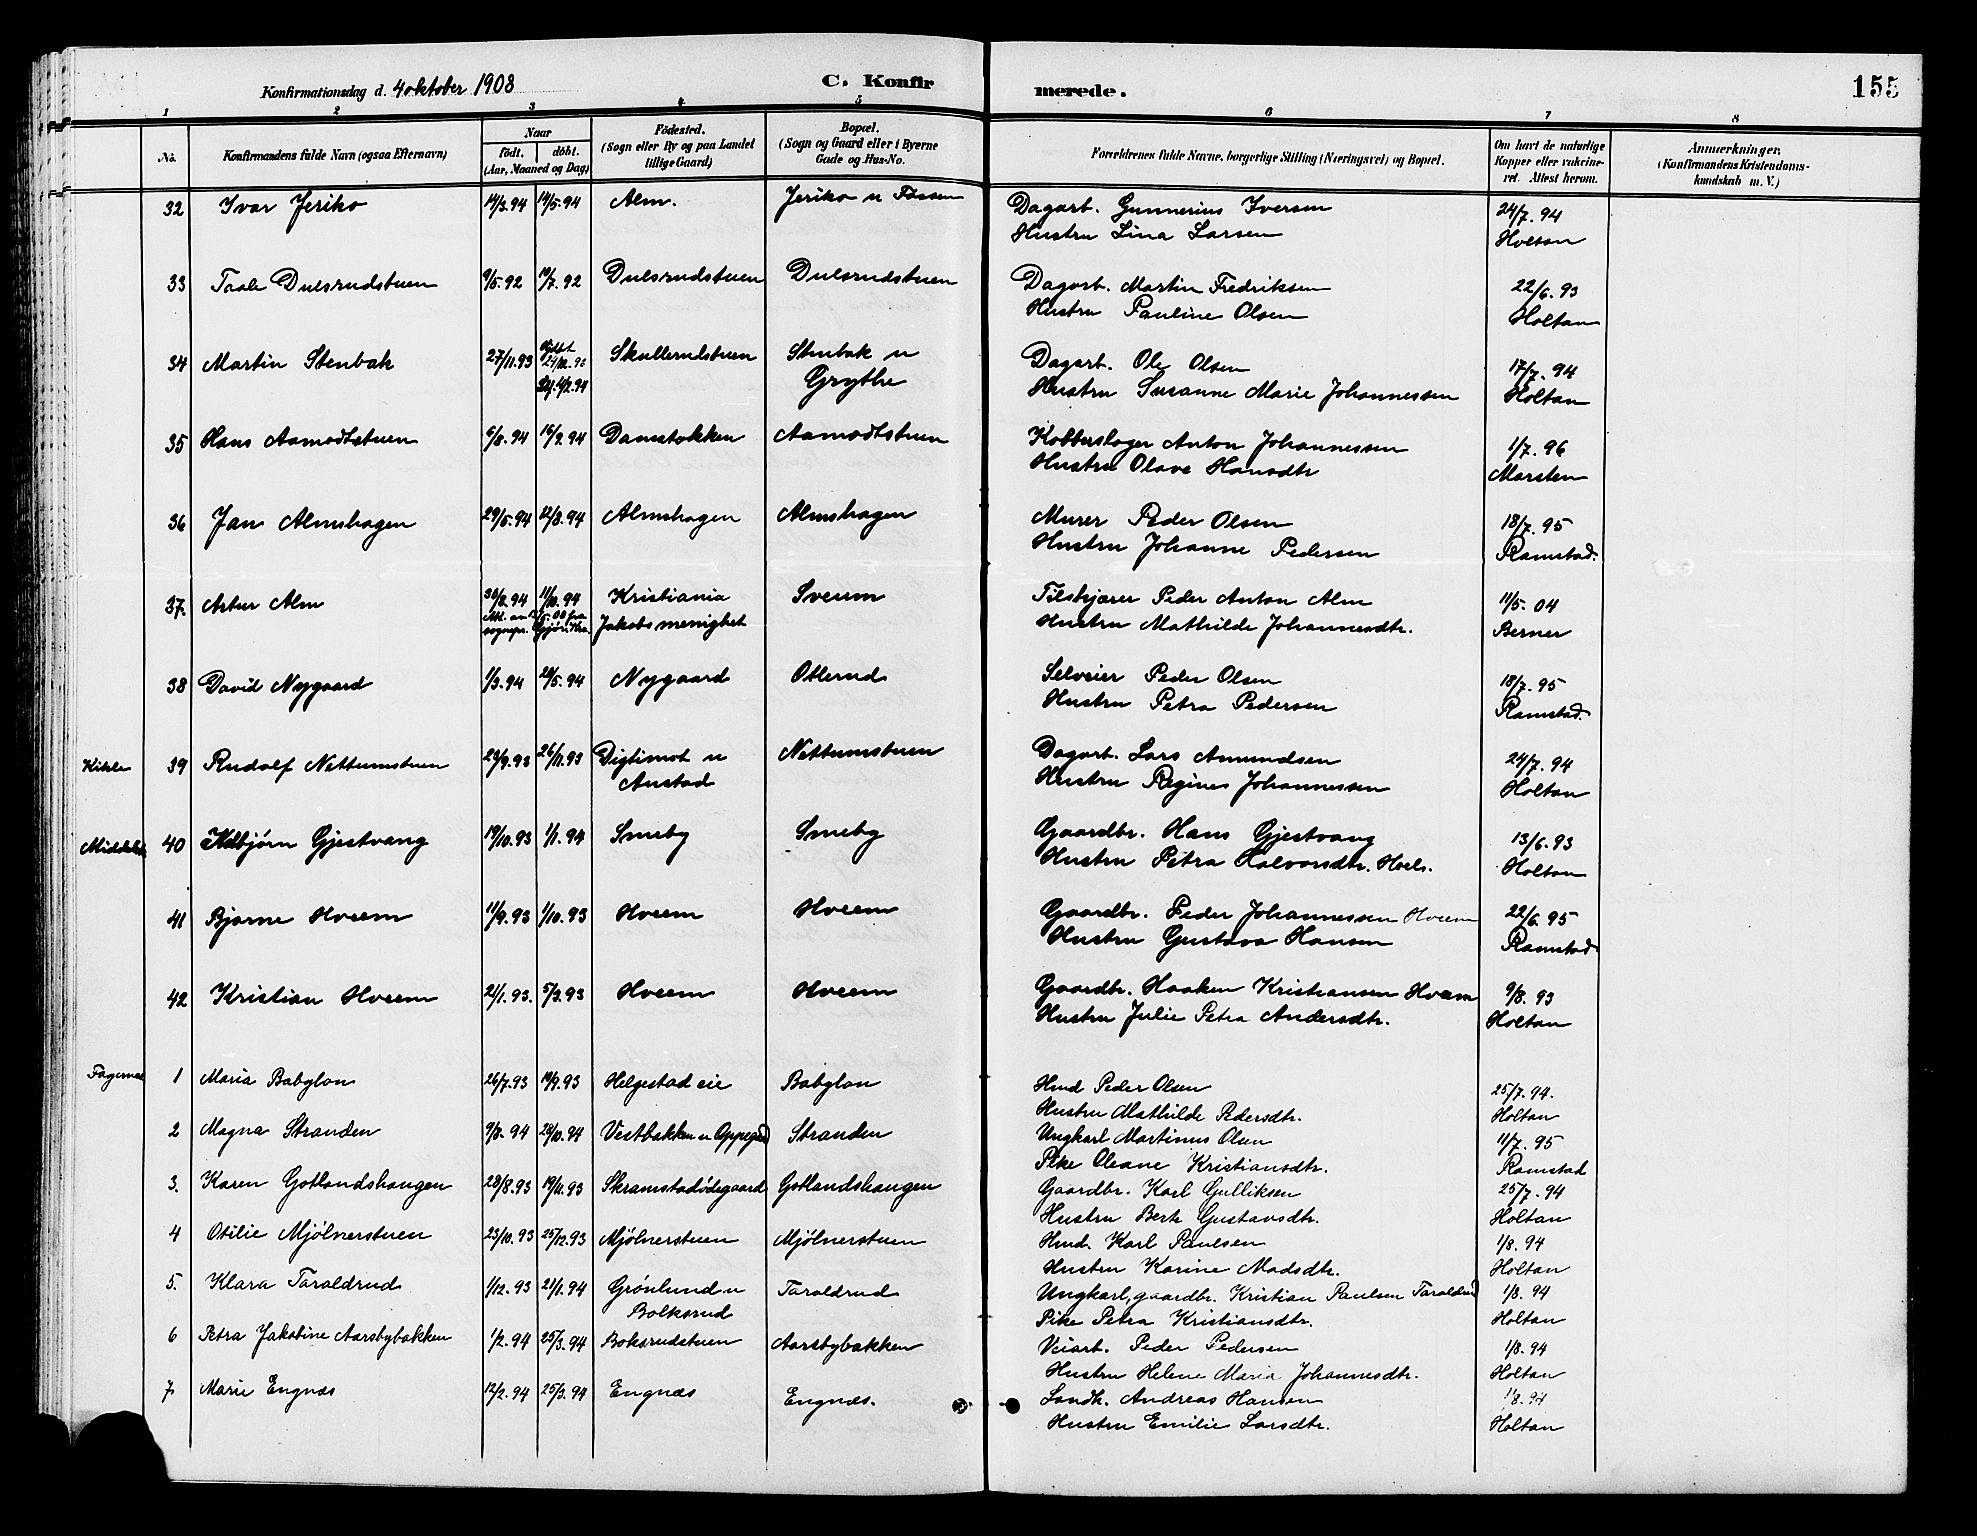 Konfirmationsdag d. 4 oktober 1908 C. Konfirmerede. 155
1 2 3 4 5 6 7 8
No. Konfirmandens fulde Navn (ogsaa Efternavn) Naar født. døbt. (Aar, Maaned og Dag) Fødested. (Sogn eller By og paa Landet tillige Gaard) Bopæl. (Sogn og Gaard eller i Byerne Gade og Hus-No. Forældrenes fulde Navne, borgerlige Stilling (Næringsvei) og Bopæl. Om havt de naturlige Kopper eller vakcineret. Attest herom. Anmærkninger. (Konfirmandens Kristendomskundskab m. V.)
32 Ivar Jeriko 14/3.94 14/5.94 Alm. Jeriko u Fossen Dagarb. Gunnerius Iversen 24/7.94
Hustru Lina Larsen Holtan
33 Taale Dulsrudstuen 9/5.92 10/7.92 Dulsrudstuen Dulsrudstuen Dagarb. Martin Fredriksen 22/6.93
Hustru Pauline Olsen Holtan
34 Martin Stenbak 27/11.93 Skullerudstuen Stenbak u Dagarb. Ole Olsen 17/7.94
Grythe Hustru Susanne Marie Johannessen Holtan
35 Hans Aamodtstuen 6/8.94 16/9.94 Damstokken Aamodtstuen Kobberslager Anton Johannessen 1/7.96
Hustru Olave Hansdtr Marsten
36 Jan Almshagen 29/5.94 12/8.94 Almshagen Almshagen Murer Peder Olsen 18/7.95
Hustru Johanne Pedersen Ramstad.
37. Artur Alm 30/8.94 11/10.94 Kristiania Sveum Tilskjærer Peder Anton Alm 11/5.04
Jakobs menighet Hustru Mathilde Johannesdtr. Berner
38 David Nygaard 1/3.94 20/5.94 Nygaard Otterud Selveier Peder Olsen 18/7.95
Hustru Petra Pedersen Ramstad.
39 Rudolf Nettumstuen 23/9.93 26/11.93 Digtimot u Nettumstuen Dagarb. Lars Amundsen 24/7.94
Anstad Hustru Regine Johannessen Holtan
40 Gjestvang 19/10.93 1/1.94 Smeby Smeby Gaardbr. Hans Gjestvang 13/6.93
Hustru Petra Halvorsdtr. Hoels. Holtan
41 Bjarne Hveem 11/9.93 1/10.93 Hveem Hveem Gaardbr. Peder Johannessen Hveem 22/6.95
Hustru Gustava Hansen Ramstad
42 Kristian Hveem 21/1.93. 5/3.93 Hveem Hveem Gaardbr. Haaken Kristiansen Hveem 9/8.93
Hustru Julie Petra Andersdtr. Holtan
1 Maria Babylon 26/7.93 10/9.93 Helgestad eie Babylon Hmd Peder Olsen 25/7.94.
Hustru Mathilde Pedersdtr. Holtan
2 Magna Stranden 9/8.94 28/10.94 Vestbakken u Oppegd Stranden Ungkarl Martinus Olsen 11/7.95
Pike Oleane Kristiansdtr. Ramstad
3. Karen Gotlandshaugen 28/8.93 19/11.93 Skramstadødegaard Gotlandshaugen Gaardbr. Karl Gulliksen 25/7.94
Hustru Berte Gustavsdtr. Holtan
4 Otilie Mjølnerstuen 23/10.93 25/12.93 Mjølnerstuen Mjølnerstuen Hmd. Karl Paulsen 1/8.94
Hustru Karine Madsdtr. Holtan
5. Klara Taraldrud 1/12.93 21/1.94 Grønlund u Taraldrud Ungkarl, gaardbr. Kristian Paulsen Taraldrud 1/8.94
Bolksrud Pike Petra Kristiansdtr. Holtan
6 Petra Jakobine Aarsbybakken 1/2.94 25/3.94 Boksrudstuen Aarsbybakken Veiarb. Peder Pedersen 1/8.94
Hustru Helene Maria Johannesdtr. Holtan
7 Marie Engnæs 12/2.94 25/3.94 Engnæs Engnæs. Landh. Andreas Hansen 1/8.94
Hustru Emilie Larsdtr. Holtan